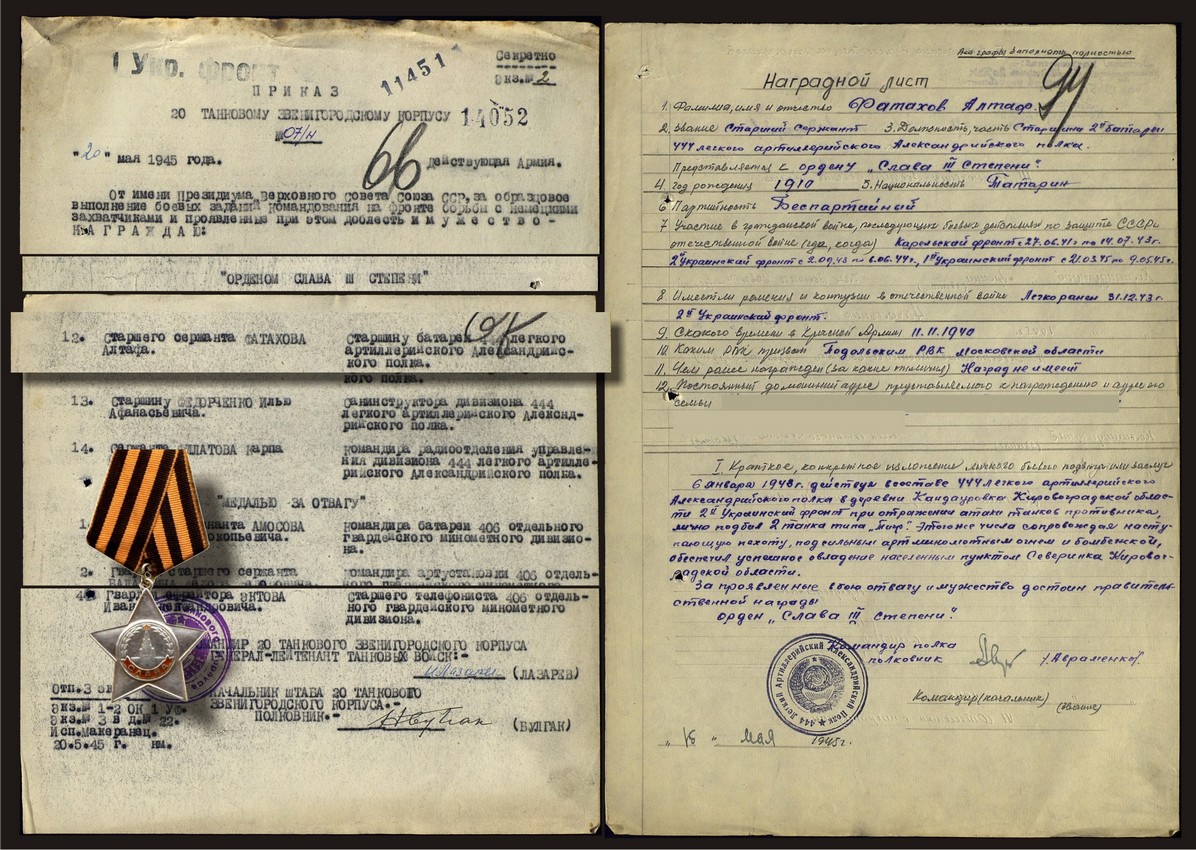 1 Укр. фронт
11451
Секретно
Экз.№ 2
ПРИКАЗ
20 ТАНКОВОМУ ЗВЕНИГОРОДСКОМУ КОРПУСУ
14052
№ 07/н
66
"20" мая 1945 года.
Действующая Армия.
От имени Президиума Верховного Совета Союза ССР, за образцовое
выполнение боевых заданий командования на фронте борьбы с немецкими
захватчиками и проявленные при этом доблесть и мужество -
НАГРАЖДАЮ:
"ОРДЕНОМ СЛАВА III СТЕПЕНИ"
12. Старшего сержанта ФАТАХОВА
Алтафа.
Старшину батареи 444 легкого
артиллерийского Александрийс-
кого полка.
кого полка.
13. Старшину ФЕДОРЧЕНКО Илью
Афанасьевича.
Санинструктора дивизиона 444
легкого артиллерийского Александ-
рийского полка.
14. Сержанта Карпа
командира радиоотделения управле-
ния дивизиона 444 легкого артилле-
рийского Александрийского полка.
"МЕДАЛЬЮ ЗА ОТВАГУ"
АМОСОВА
командира батареи 406 отдельного
гвардейского минометного дивизио-
на.
2. старшего сержанта
командира артустановки 406 отдель-
Старшего телефониста 406 отдель-
ного гвардейского минометного
дивизиона.
КОМАНДИР 20 ТАНКОВОГО ЗВЕНИГОРОДСКОГО КОРПУСА
ГЕНЕРАЛ-ЛЕЙТЕНАНТ ТАНКОВЫХ ВОЙСК:-
(ЛАЗАРЕВ)
НАЧАЛЬНИК ШТАБА 20 ТАНКОВОГО
ЗВЕНИГОРОДСКОГО КОРПУСА.-
ПОЛКОВНИК.-
(БУЛГАК)
Отп. 3 экз.
Экз.№ 1-2 ОК 1 УФ.
Экз.№ 3 в д.№ 22.
Исп.Макеранец.
20.5.45 г. нм.
Все графы заполнять полностью
94
Наградной лист
1. Фамилия, имя и отчество Фатахов Алтаф.
2. Звание Старший Сержант 3. Должность, часть Старшина 2й батареи
444 легкого артиллерийского Александрийского полка.
Представляется к ордену „Слава III Степени".
4. Год рождения 1910 5. Национальность Татарин
6. Партийность Беспартийный
7. Участие в гражданской войне, последующих боевых действиях по защите СССР и
отечественной войне (где, когда) Карельский фронт с 27.06.41г по 14.07.43г.
2й Украинский фронт с 2.09.43 по 6.06.44г., 1й Украинский фронт с 21.03.45 по 9.05.45г.
8. Имеет ли ранения и контузии в отечественной войне Легко ранен 31.12.43г.
2й Украинский фронт.
9. С какого времени в Красной Армии 11.11.1940
10. Каким РВК призван Подольским РВК Московской области
11. Чем ранее награжден (за какие отличия) Наград не имеет
12. Постоянный домашний адрес представляемого к награждению и адрес его
семьи
I. Краткое, конкретное изложение личного боевого подвига или заслуг
6 января 1943г. действуя в составе 444 легкого артиллерийского
Александрийского полка в деревни Кандауровка Кировоградской облас-
ти 2й Украинский фронт при отражении атаки танков противника,
лично подбил 2 танка типа „Тигр". Этого же числа сопровождая насту-
пающую пехоту, под сильным артминометным огнем и бомбежкой,
обеспечил успешное овладение населенным пунктом Северинка Кировог-
радской области.
За проявленные в бою отвагу и мужество достоин правитель-
ственной награды
орден „Слава III Степени".
Командир полка
полковник
/Авраменко/.
444 Легкий Артиллерийский Александрийский Полк
Командир (начальник)
(звание)
„16" мая 1945г.